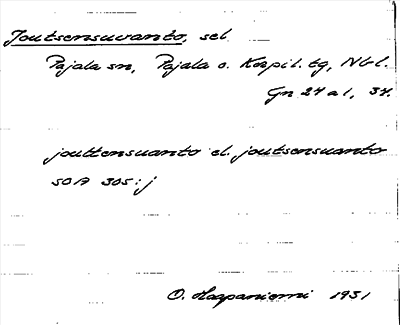 Joutsensuvanto, sel
Pajala sn, Pajala o. Korpil. tg, Nbl.
Gn 27 a 1, 34.
jouttensuanto el. joutsensuanto
SOA 305:j
O. Haapaniemi 1931